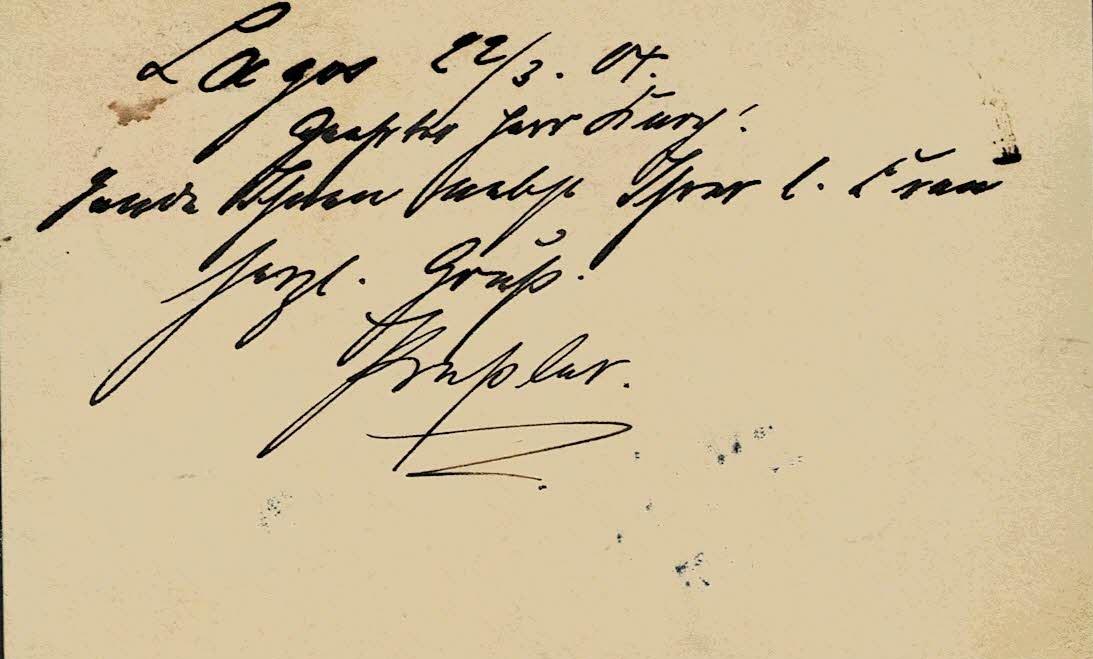 Lagos 22/3. 04.
Geehrter Herr Kurz!
Sende Ihnen nebst Ihrer l. Frau
herzl. Gruß.
Preßler.